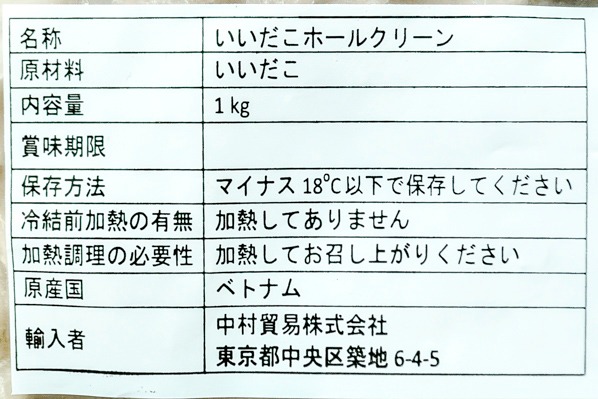 名称 いいだこホールクリーン
原材料 いいだこ
内容量 1 kg
賞味期限
保存方法 マイナス 18℃以下で保存してください
冷結前加熱の有無 加熱してありません
加熱調理の必要性 加熱してお召し上がりください
原産国 ベトナム
輸入者 中村貿易株式会社
東京都中央区築地 6-4-5